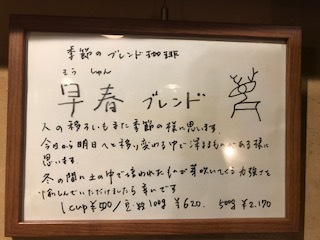 季節のブレンド珈琲
そう しゅん
早春 ブレンド
人の移ろいもまた季節の様に思います。
今日から明日へと移り変わる中で深まるものがある様に
思います。
冬の間に土の中で培われたものが芽吹いてくる力強さを
愉しんでいただけましたら幸いです
1cup ¥500/豆・粉100g ¥620. 500g ¥2.170